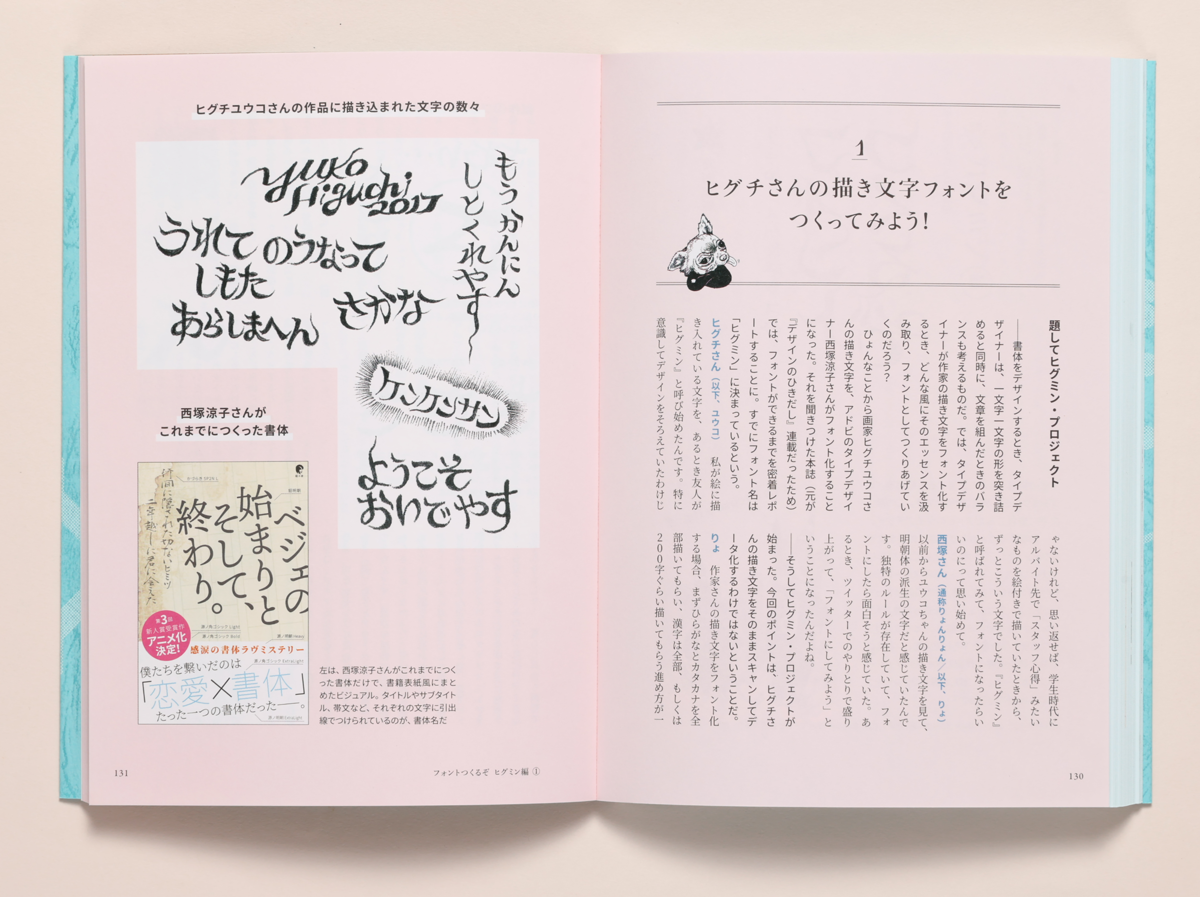 1
ヒグチさんの描き文字フォントを
つくってみよう!
題してヒグミン・プロジェクト
――書体をデザインするとき、タイプデ
ザイナーは、一文字一文字の形を突き詰
めると同時に、文章を組んだときのバラ
ンスも考えるものだ。では、タイプデザ
イナーが作家の描き文字をフォント化す
るとき、どんな風にそのエッセンスを汲
み取り、フォントとしてつくりあげてい
くのだろう?
ひょんなことから画家ヒグチユウコさ
んの描き文字を、アドビのタイプデザイ
ナー西塚涼子さんがフォント化すること
になった。それを聞きつけた本誌(元が
『デザインのひきだし』連載だったため)
では、フォントができるまでを密着レポ
ートすることに。すでにフォント名は
「ヒグミン」に決まっているという。
ヒグチさん(以下、ユウコ) 私が絵に描
き入れている文字を、あるとき友人が
『ヒグミン』と呼び始めたんです。特に
意識してデザインをそろえていたわけじ
ゃないけれど、思い返せば、学生時代に
アルバイト先で「スタッフ心得」みたい
なものを絵付きで描いていたときから、
ずっとこういう文字でした。『ヒグミン』
と呼ばれてみて、フォントになったらい
いのにって思い始めて。
西塚さん(通称りょんりょん/以下、りょ)
以前からユウコちゃんの描き文字を見て、
明朝体の派生の文字だと感じていたんで
す。独特のルールが存在していて、フォ
ントにしたら面白そうと感じていた。あ
るとき、ツイッターでのやりとりで盛り
上がって、「フォントにしてみよう」と
いうことになったんだよね。
――そうしてヒグミン・プロジェクトが
始まった。今回のポイントは、ヒグチさ
んの描き文字をそのままスキャンしてデ
ータ化するわけではないということだ。
りょ 作家さんの描き文字をフォント化
する場合、まずひらがなとカタカナを全
部描いてもらい、漢字は全部、もしくは
200字ぐらい描いてもらう進め方が一
130
ヒグチユウコさんの作品に描き込まれた文字の数々
もうかんにん
しとくれやす〜
YUKO
Higuchi
2017
うれて
しもた
のうなって
あらしまへん
さかな
ケンケンサン
ようこそ
おいでやす
西塚涼子さんが
これまでにつくった書体
ベジェの
始まりと
そして、
終わり。
第3回
新人賞受賞作
アニメ化
決定!
感涙の書体ラヴミステリー
僕たちを繋いだのは
「恋愛×書体」
たった一つの書体だった―。
左は、西塚涼子さんがこれまでにつく
った書体だけで、書籍表紙風にまと
めたビジュアル。タイトルやサブタイト
ル、帯文など、それぞれの文字に引出
線でつけられているのが、書体名だ
131
フォントつくるぞ ヒグミン編 ①